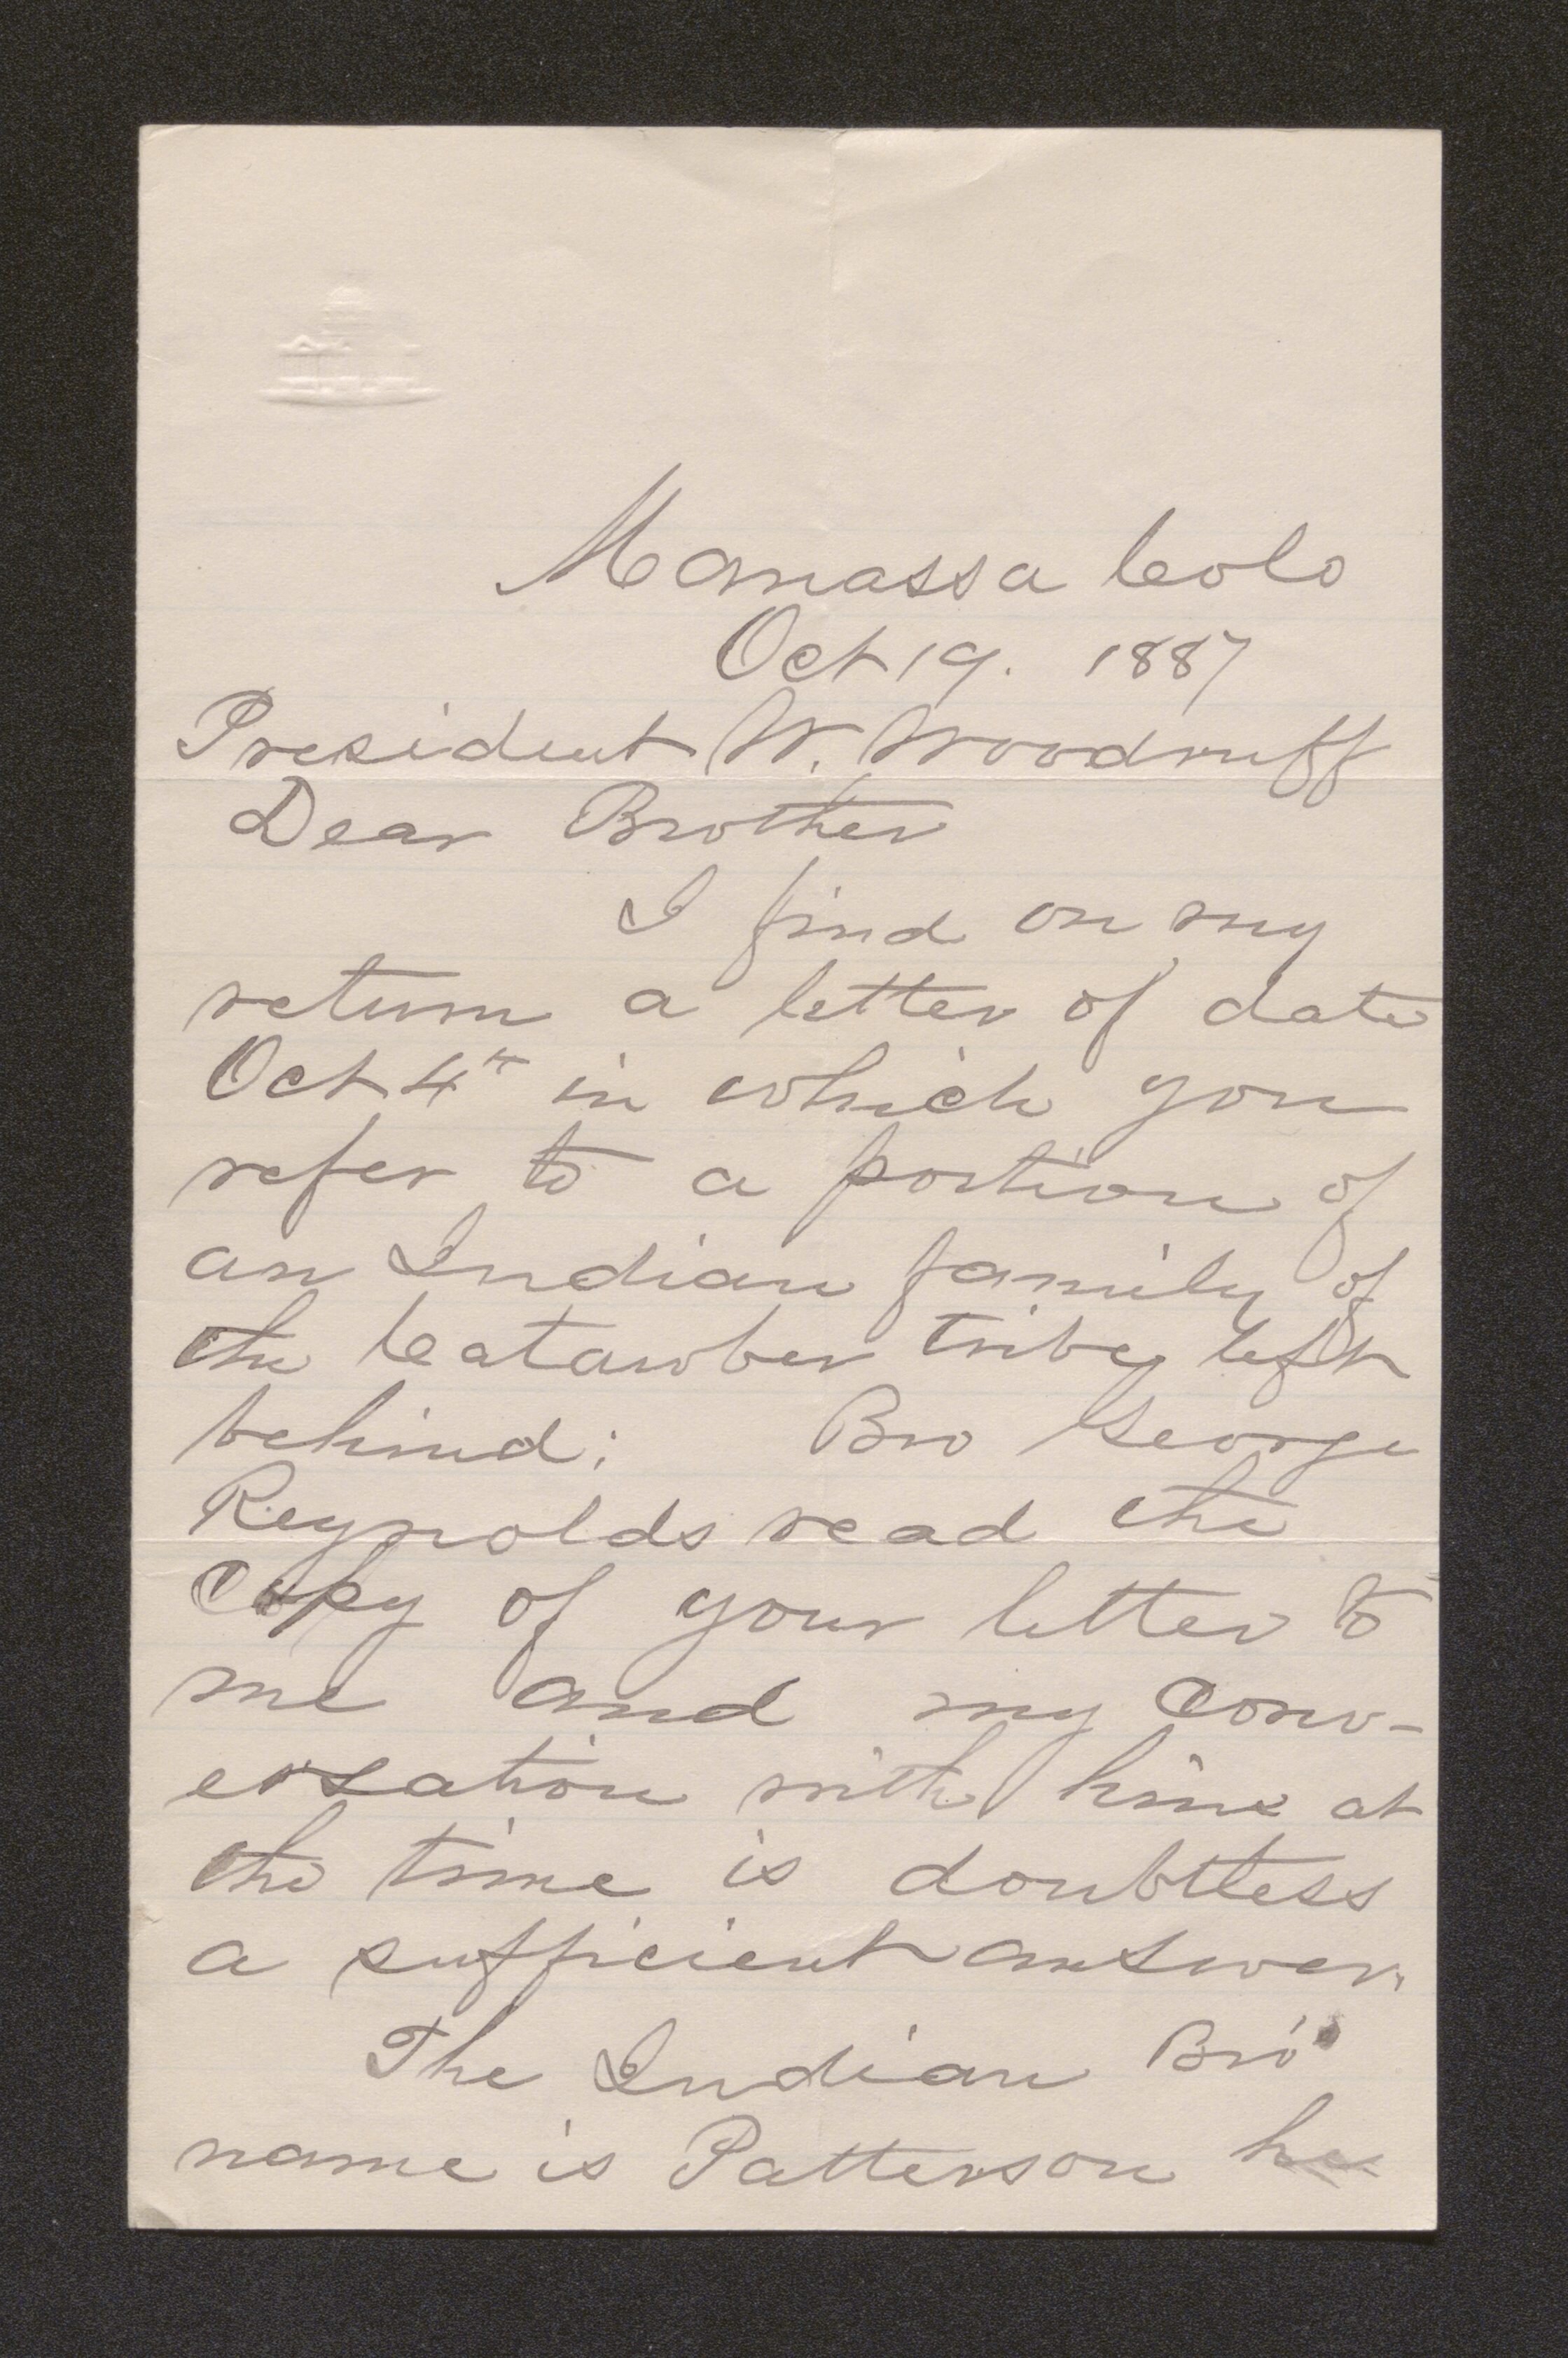 Manassa Colo
Oct 19. 1887
President W. Woodruff
Dear Brother
I find on my
return a letter of date
Oct 4th in which you
refer to a portion of
an Indian family of
the Catawber tribe left
behind; Bro George
Reynolds read the
Copy of your letter to
me and my Conv-
ersation with him at
the time is doubtless
a sufficient answer.
The Indian Bro
name is Patterson he